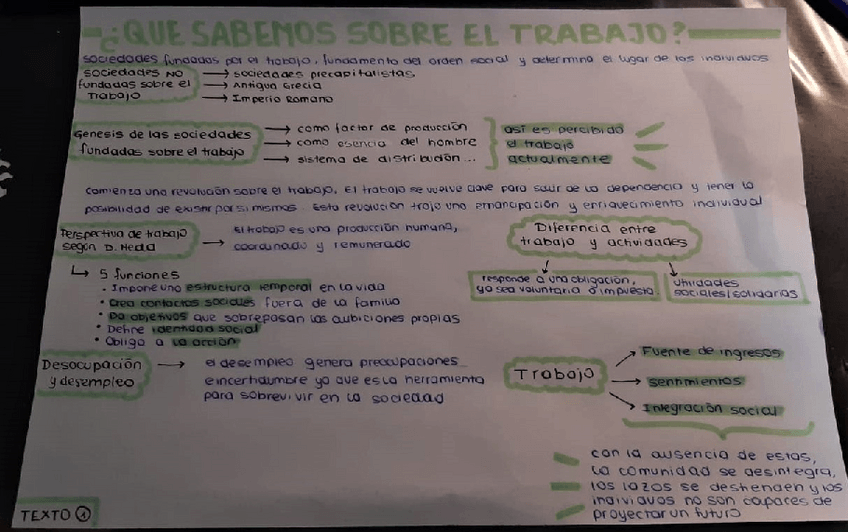 ¿QUE SABEMOS SOBRE EL TRABAJO?
sociedades fundadas por el trabajo, fundamento del orden social y determina el lugar de los individuos
sociedades NO fundadas sobre el Trabajo
→ sociedades precapitalistas
→ Antigua Grecia
→ Imperio Romano
Genesis de las sociedades fundadas sobre el trabajo
→ como factor de producción
→ como esencia del hombre
→ sistema de distribución...
así es percibido
el trabajo
actualmente
comienza una revolución sobre el trabajo. El trabajo se vuelve clave para salir de la dependencia y tener la
posibilidad de existir por si mismos. Esta revolución trajo una emancipación y enriquecimiento individual
Perspectiva de trabajo
según D. Meda
→ El trabajo es una producción humana,
coordinado y remunerado
5 funciones
• Impone una estructura temporal en la vida
• Crea contactos sociales fuera de la familia
• Da objetivos que sobrepasan las aubiciones propias
• Define identidad social
• Obliga a la acción
Diferencia entre
trabajo y actividades
responde a una obligación,
ya sea voluntaria o impuesta
utilidades
sociales/solidarias
Desocupación
y desempleo
→ el desempleo genera preocupaciones
e incertidumbre ya que es la herramienta
para sobrevivir en la sociedad
Trabajo
→ Fuente de ingresos
→ sentimientos
→ Integración social
con la ausencia de estas,
la comunidad se desintegra,
los lazos se destienden y los
individuos no son capaces de
proyectar un futuro
TEXTO 1